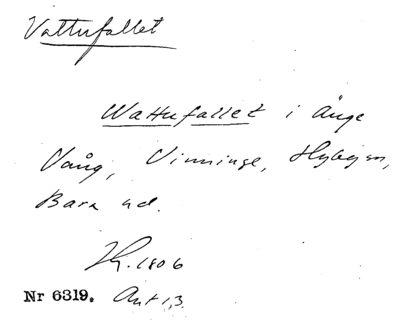 Vattufallet
Wattufallet i Änge
Vång, Vinninge, Hyby sn,
Bara hd.
1806
Nr 6319. Akt 13